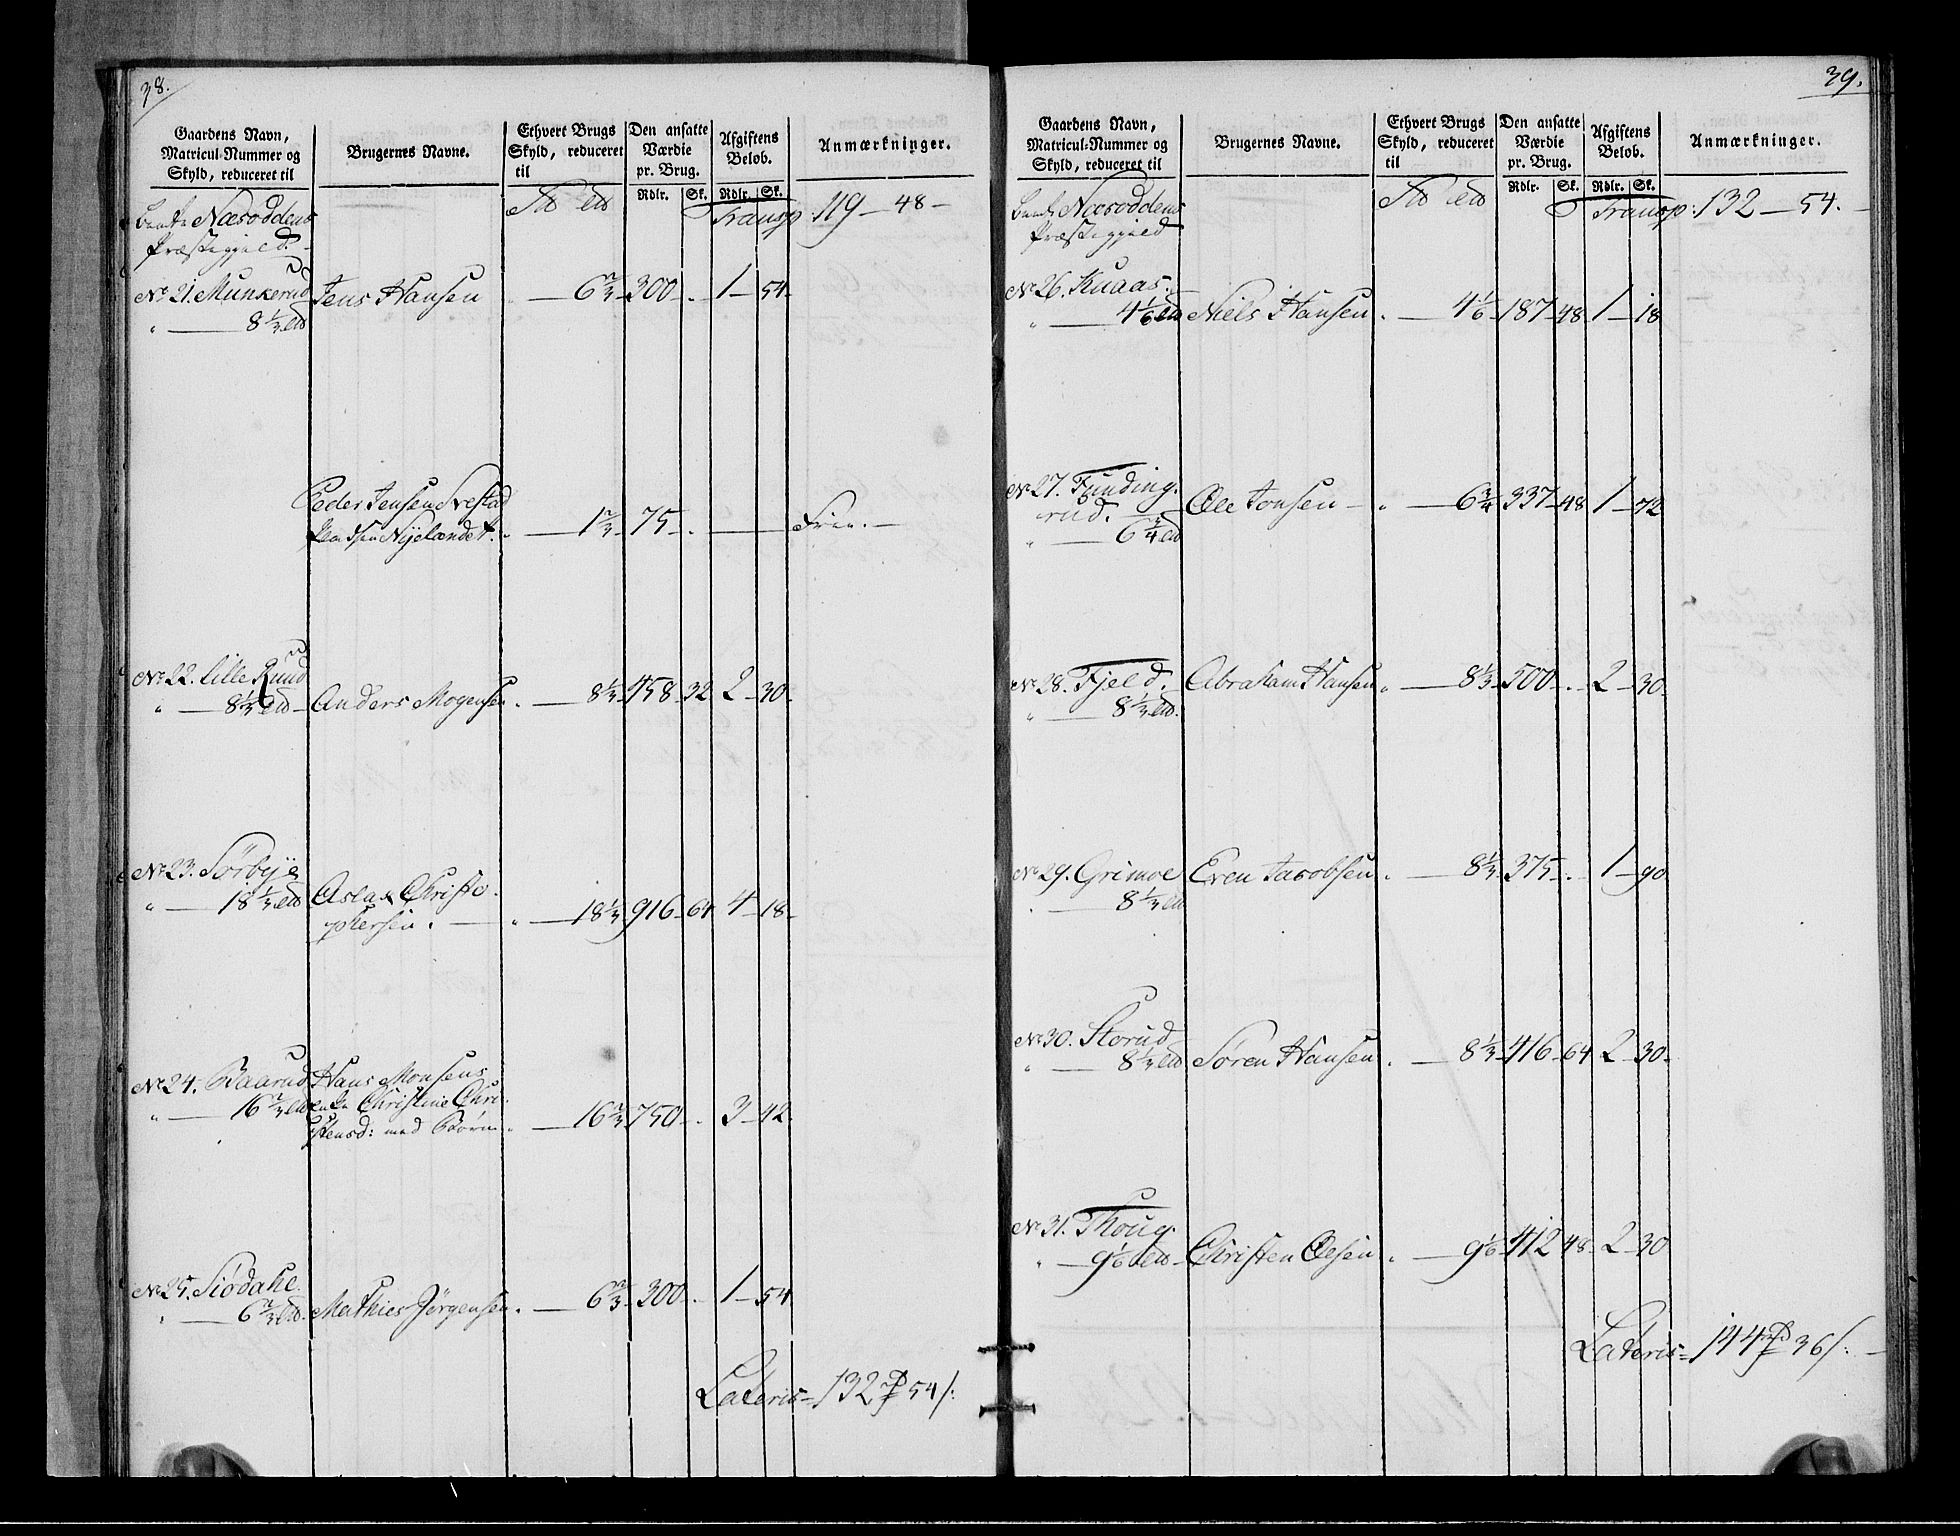 38.
Gaardens Navn,
Matricul-Nummer og
Skyld, reduceret til
Brugernes Navne.
Ethvert Brugs
Skyld, reduceret
til
Den ansatte
Værdie
pr. Brug.
Rdlr. Sk.
Afgiftens
Beløb.
Rdlr. Sk.
Anmærkninger.
Næsoddens
Præstegjeld.
Transp: 119 - 48 -
No 21. Munkerud Jens Hansen 6 2/3 300 - . 1 - 54.
" 8 1/3
Peder Jensen Svestad
Pladsen Nyelændet. 1 2/3 75 - . Frie. -
No 22. Lille Ruud
" 8 1/3 Anders Mogensen 8 1/3 458 32 2 - 30.
No 23. Sörbye
" 18 1/3 Aslak Christo-
phersen. 18 1/3 916 - 64 4 - 18 -
No 24. Baarud Hans Monsens
" 16 2/3 Enke Christine Chri-
stensd: med Børn 16 2/3 750 - . 3 - 42.
No 25. Siödahl.
" 6 2/3 Mathies Jørgensen. 6 2/3 300 - . 1 - 54
Lateris = 132 54 /:
39.
Gaardens Navn,
Matricul-Nummer og
Skyld, reduceret til
Brugernes Navne.
Ethvert Brugs
Skyld, reduceret
til
Den ansatte
Værdie
pr. Brug.
Rdlr. Sk.
Afgiftens
Beløb.
Rdlr. Sk.
Anmærkninger.
Næsoddens
Præstegjeld
Transp: 132 - 54. -
No 26. Knaas.
" 4 1/6 Niels Hansen. 4 1/6 187 - 48 1 - 18
No 27. Funding-
rud. Ole Jonsen - 6 3/4 337 - 48 1 - 72
" 6 3/4
No 28. Fjeld. Abraham Hansen 8 1/3 500 - . 2 - 30
" 8 1/3
No 29. Grimoe Even Jacobsen 8 1/3 375 - . 1 - 90
8 1/3
No 30. Storud
" 8 1/3 Søren Hansen 8 1/3 416 - 64 2 - 30
No 31. Thoug.
" 9 1/6 Christen Olsen 9 1/6 412 48 2 - 30
Lateris = 144 36 /: